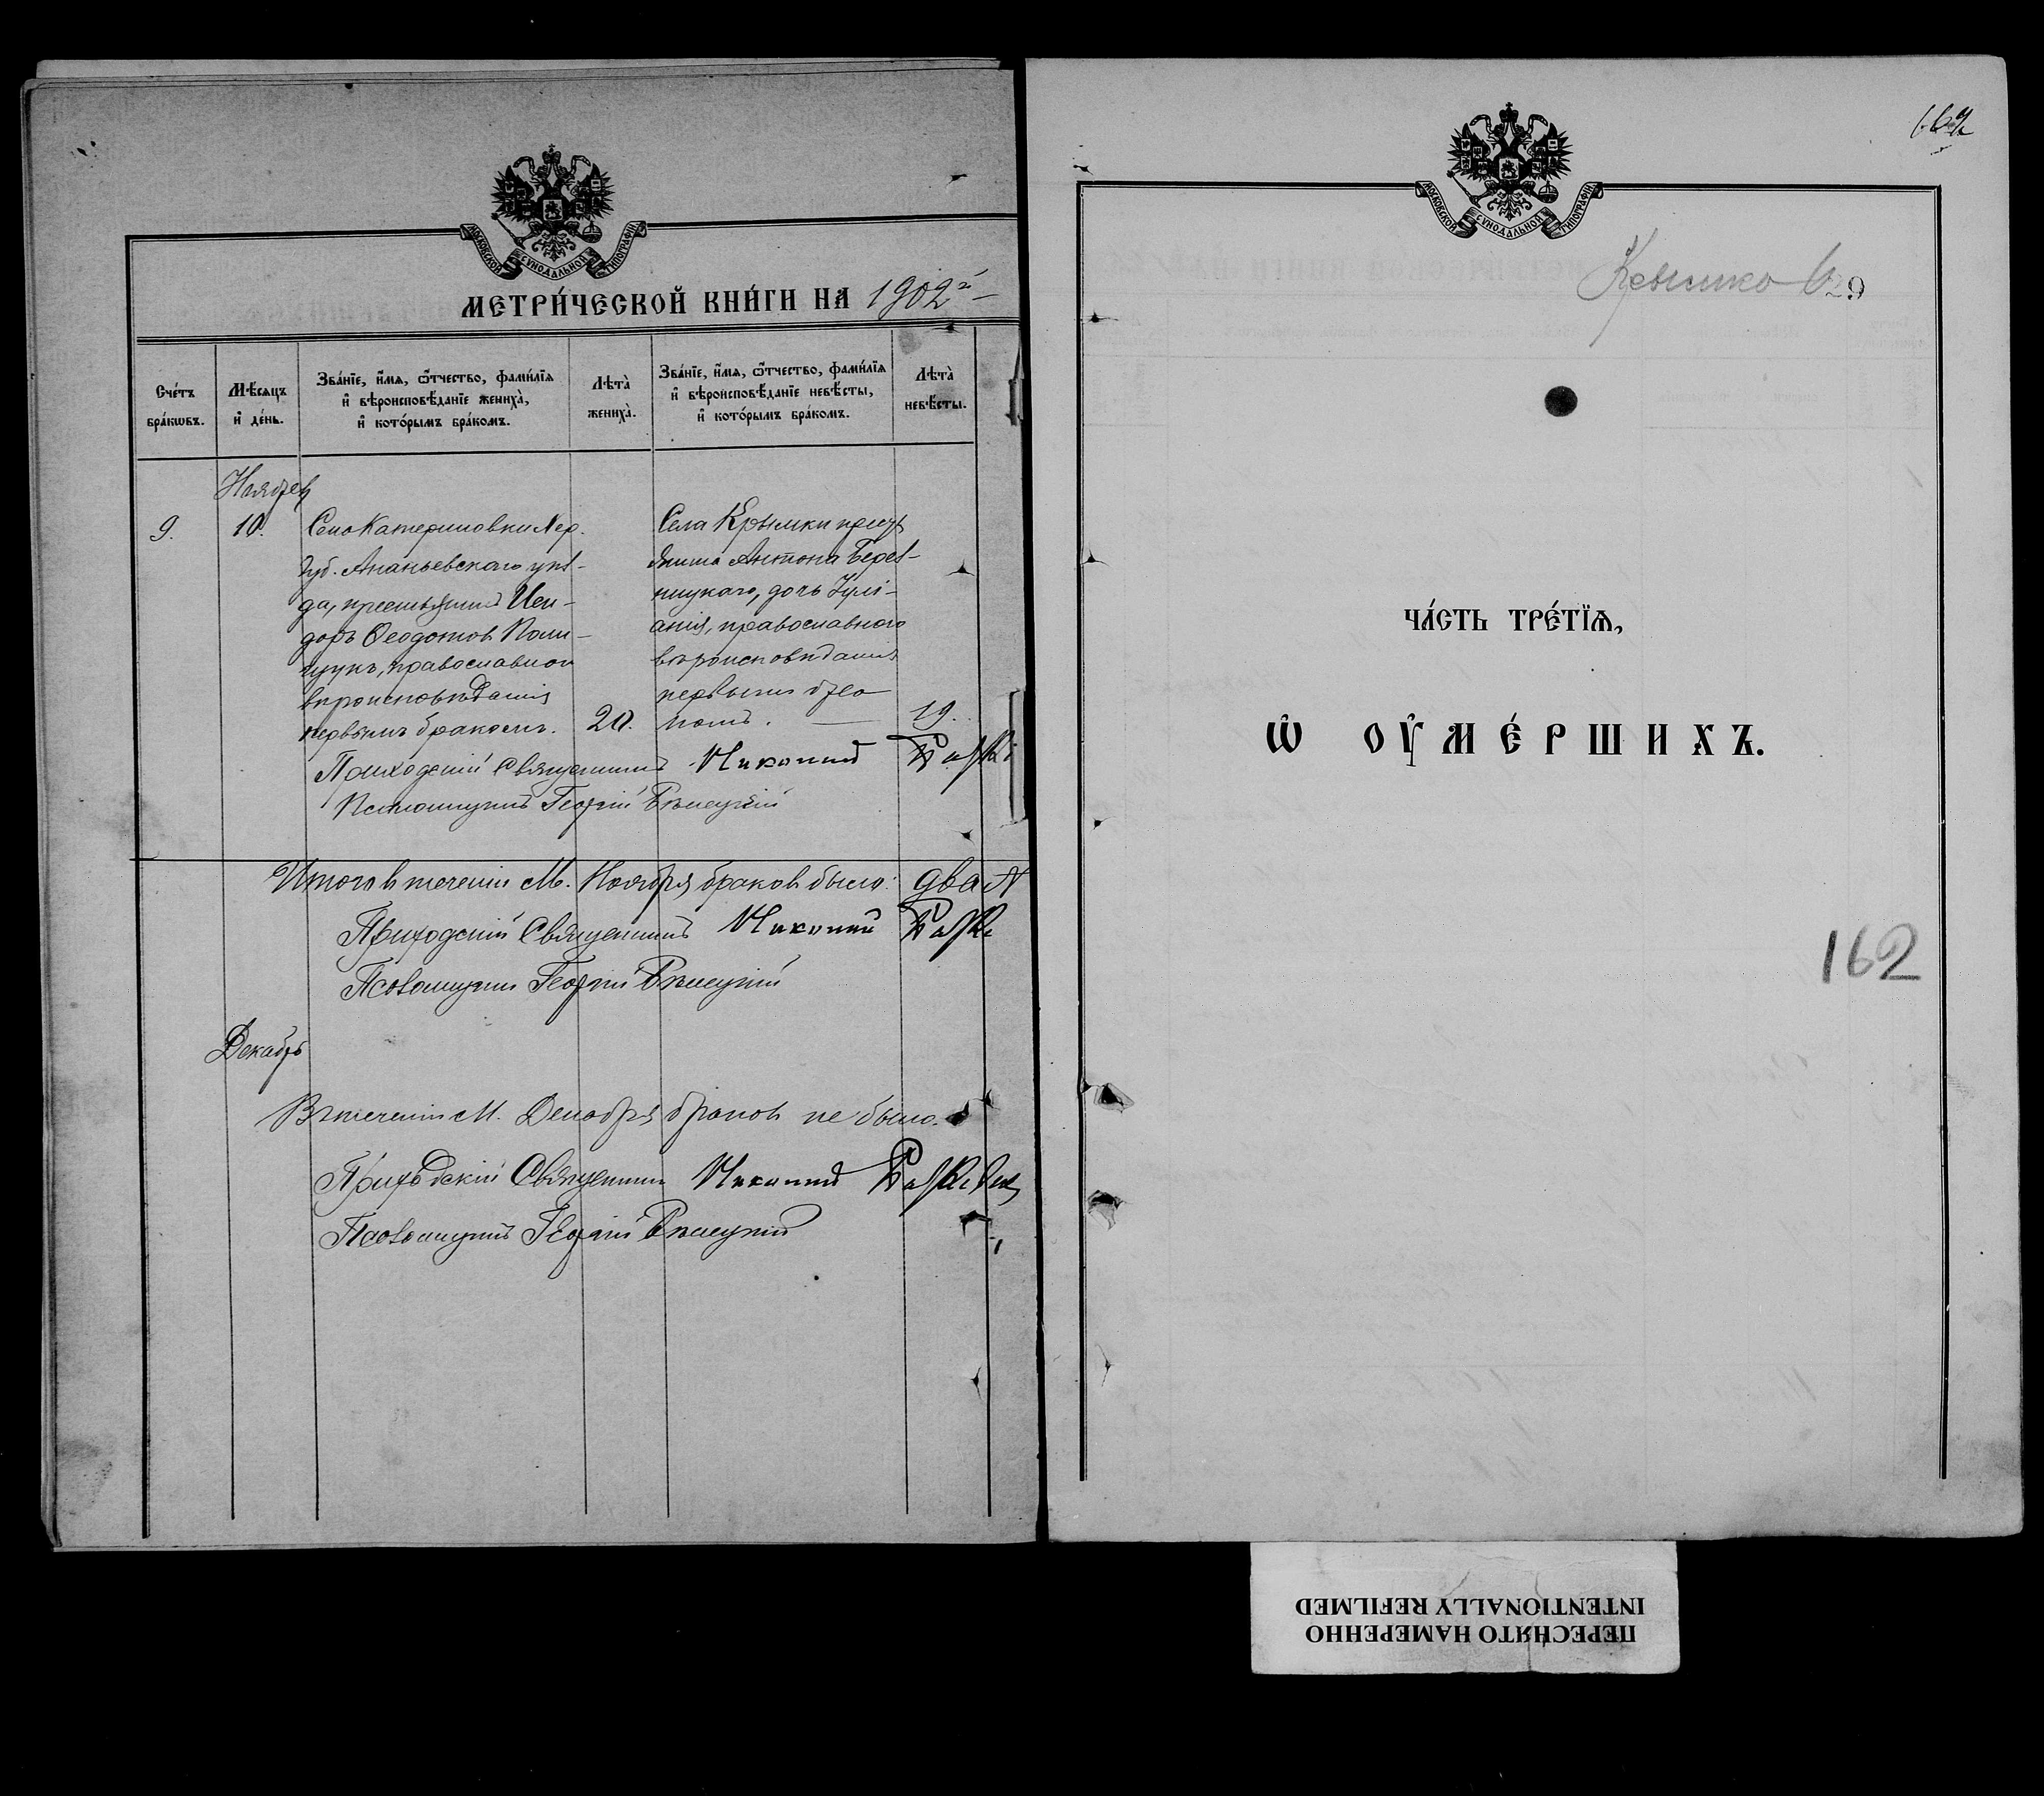 МОСКОВСКОЙ СѴНОДАЛЬНОЙ ТИПОГРАФІИ
МЕТРИ́ЧЕСКОЙ КНИ́ГИ НА 1902й
Сче́тъ бра́кѡвъ.
Мѣ́сяцъ и҆ де́нь.
Зва́нїе, и҆́мѧ, ѻ҆́тчество, фами́лїѧ и҆ вѣроисповѣ́данїе жениха̀, и҆ кото́рымъ бра́комъ.
Лѣта̀ жениха̀.
Зва́нїе, и҆́мѧ, ѻ҆́тчество, фами́лїѧ и҆ вѣроисповѣ́данїе невѣ́сты, и҆ кото́рымъ бра́комъ.
Лѣта̀ невѣ́сты.
Ноябрь
9.
10.
Село Катериновки Хер.
губ. Ананьевского уѣз-
да, крестьянин Иси-
доръ Ѳеодотов Поли-
щукъ, православнои
вѣроисповѣданія
первымъ бракомъ.
20.
Села Крымки
Антона Берез-
ницкаго, дочь Іулі-
анія, православного
вѣроисповѣданія
первымъ бра-
комъ.
19.
Приходскій Священникъ
Псаломщикъ Георгій
Итого в теченіи М. Ноября браков было: два
Приходскій Священникъ
Псаломщикъ Георгій
Декабрь
Въ теченіи М. Декабря браков не было.
Приходскій Священник
Псаломщикъ Георгій
МОСКОВСКОЙ СѴНОДАЛЬНОЙ ТИПОГРАФІИ
Крымка
29
ЧА́СТЬ ТРЕ́ТЇѦ,
Ѡ҆ ОУ҆МЕ́РШИХЪ.
162
ПЕРЕСНЯТО НАМЕРЕННО
INTENTIONALLY REFILMED